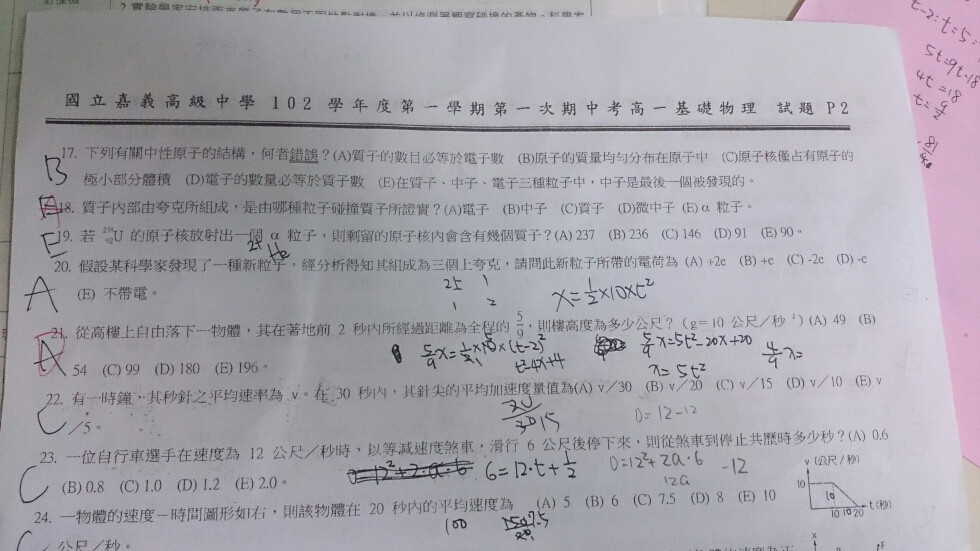 2.
t-2:t=5:
5t=9t-18
4t=18
t=9/2
國立嘉義高級中學 102 學年度第一學期第一次期中考高一基礎物理 試題 P2
B 17. 下列有關中性原子的結構，何者錯誤？(A)質子的數目必等於電子數 (B)原子的質量均勻分布在原子中 (C)原子核僅占有原子的
極小部分體積 (D)電子的數量必等於質子數 (E)在質子、中子、電子三種粒子中，中子是最後一個被發現的。
A 18. 質子內部由夸克所組成，是由哪種粒子碰撞質子所證實？(A)電子 (B)中子 (C)質子 (D)微中子 (E) α 粒子。
E 19. 若 ²³⁸₉₂U 的原子核放射出一個 α 粒子，則剩留的原子核內會含有幾個質子？(A) 237 (B) 236 (C) 146 (D) 91 (E) 90。
He
A 20. 假設某科學家發現了一種新粒子，經分析得知其組成為三個上夸克，請問此新粒子所帶的電荷為 (A) +2e (B) +e (C) -2e (D) -e
(E) 不帶電。
x=1/2×10×t²
21. 從高樓上自由落下一物體，其在著地前 2 秒內所經過距離為全程的 5/9，則樓高度為多少公尺？（g=10 公尺／秒²）(A) 49 (B)
54 (C) 99 (D) 180 (E) 196。
5/9x=5t²-20x+20
x=5t²
4/9x=
C 22. 有一時鐘，其秒針之平均速率為 v。在 30 秒內，其針尖的平均加速度量值為(A) v／30 (B) v／20 (C) v／15 (D) v／10 (E) v
／5。
2v/30 15
0=12-12
C 23. 一位自行車選手在速度為 12 公尺／秒時，以等減速度煞車，滑行 6 公尺後停下來，則從煞車到停止共歷時多少秒？(A) 0.6
(B) 0.8 (C) 1.0 (D) 1.2 (E) 2.0。
6=12·t+1/2
0=12²+2a·6
12a
-12
v (公尺／秒)
10
10
10 10 20
t(秒)
24. 一物體的速度－時間圖形如右，則該物體在 20 秒內的平均速度為 (A) 5 (B) 6 (C) 7.5 (D) 8 (E) 10
公尺／秒。
100
150/20 7.5
x